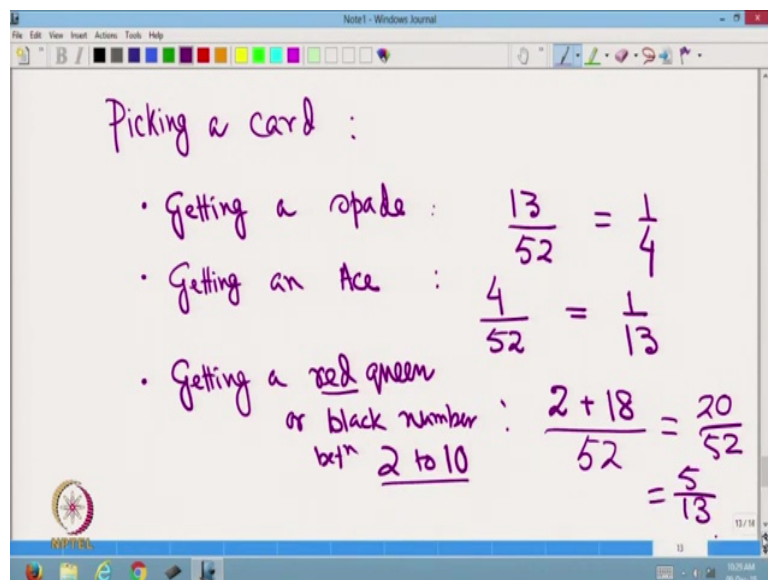 Note1 - Windows Journal
File Edit View Insert Actions Tools Help
Picking a card :
• Getting a spade : 13/52 = 1/4
• Getting an Ace : 4/52 = 1/13
• Getting a red queen
or black number : 2 + 18/52 = 20/52
betn 2 to 10
= 5/13
NPTEL
13/14
13
10:29 AM